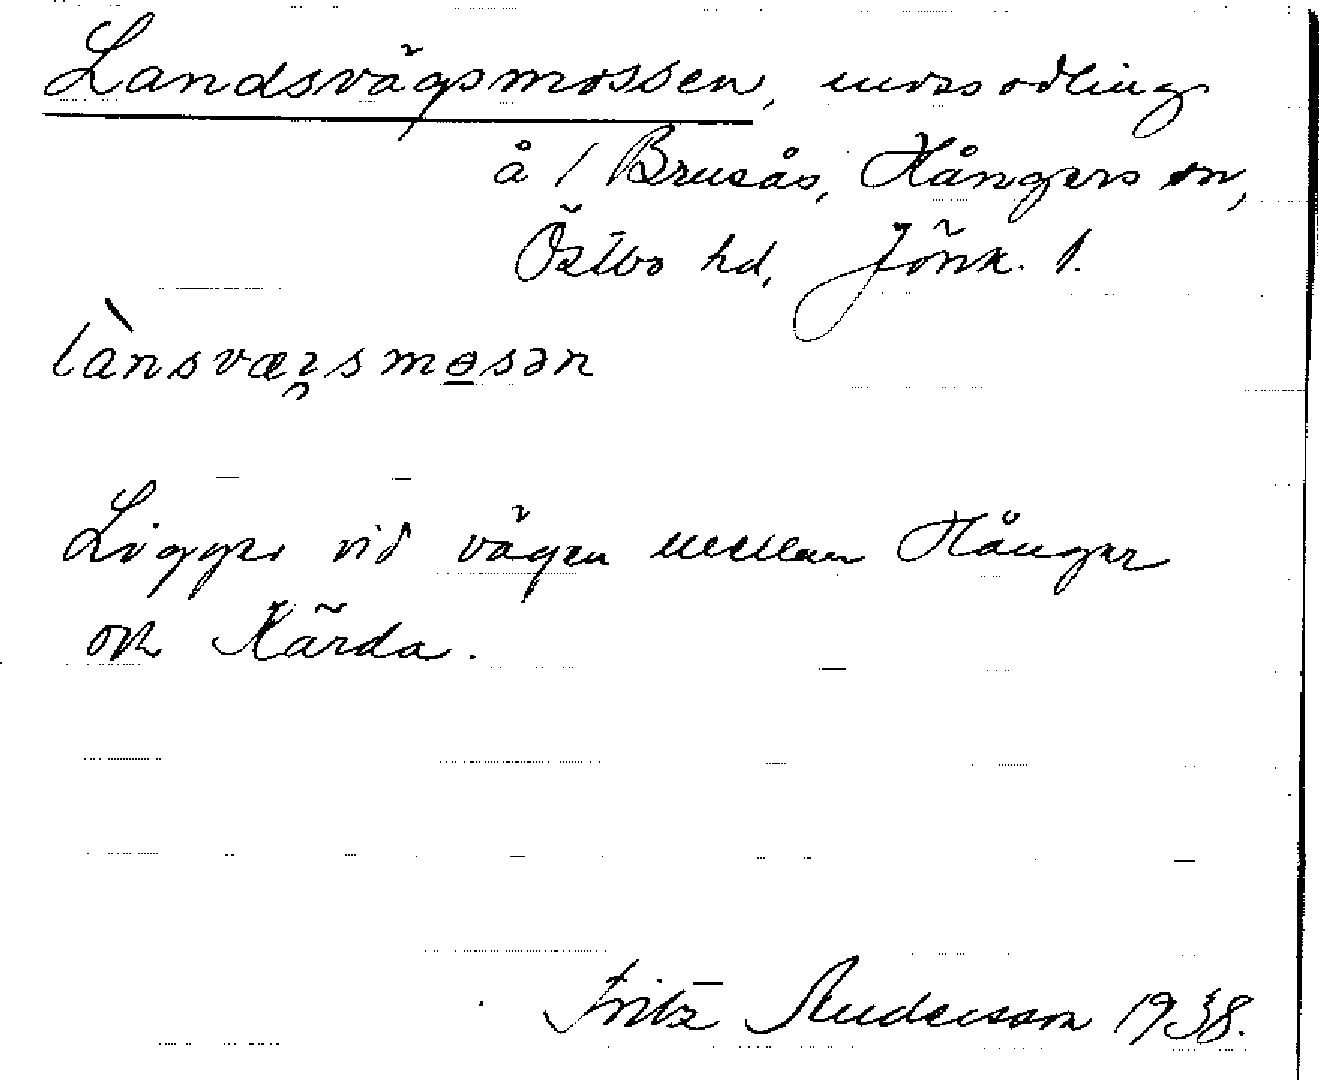 Landsvägsmossen, mossodling
å 1 Brusås, Hångers sn,
Östbo hd, Jönk. l.
lànsvæ̀rsmɵsən
Ligger vid vägen mellan Hånger
och Kärda.
Fritz Anderson 1938.